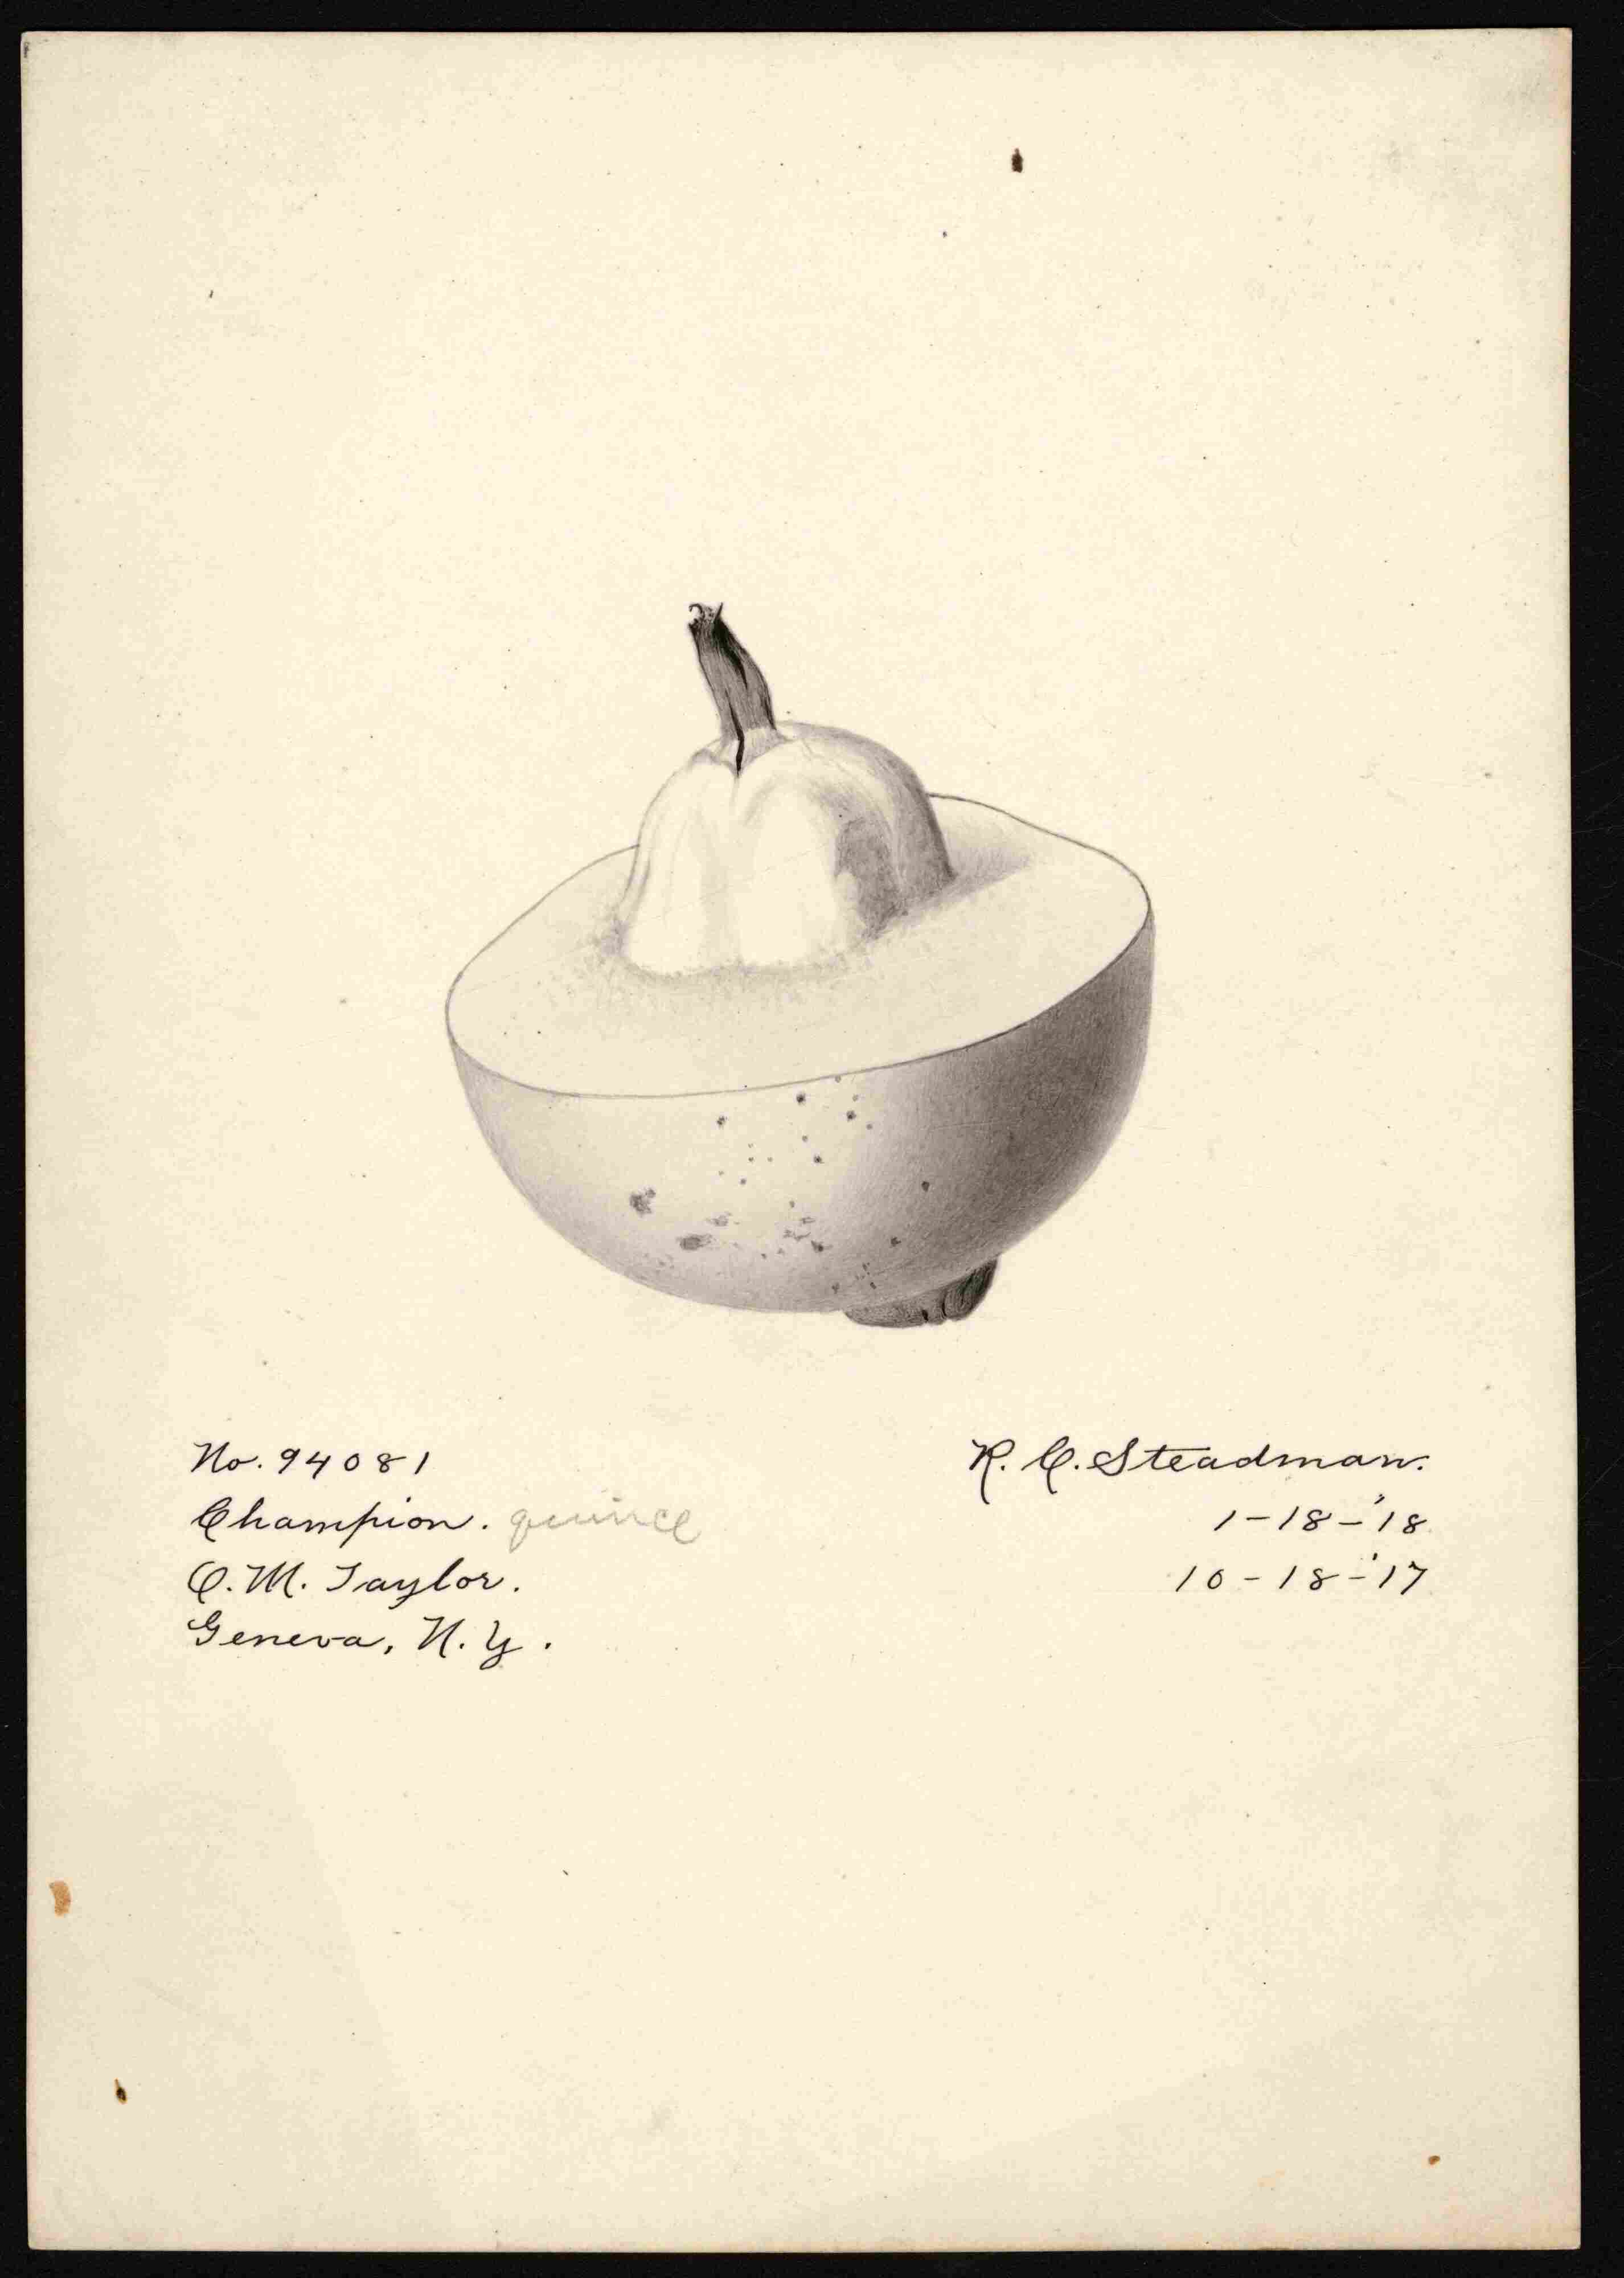 No. 94081
Champion. quince
O. M. Taylor.
Geneva, N. Y.
R. C. Steadman.
1-18-'18
10-18-'17